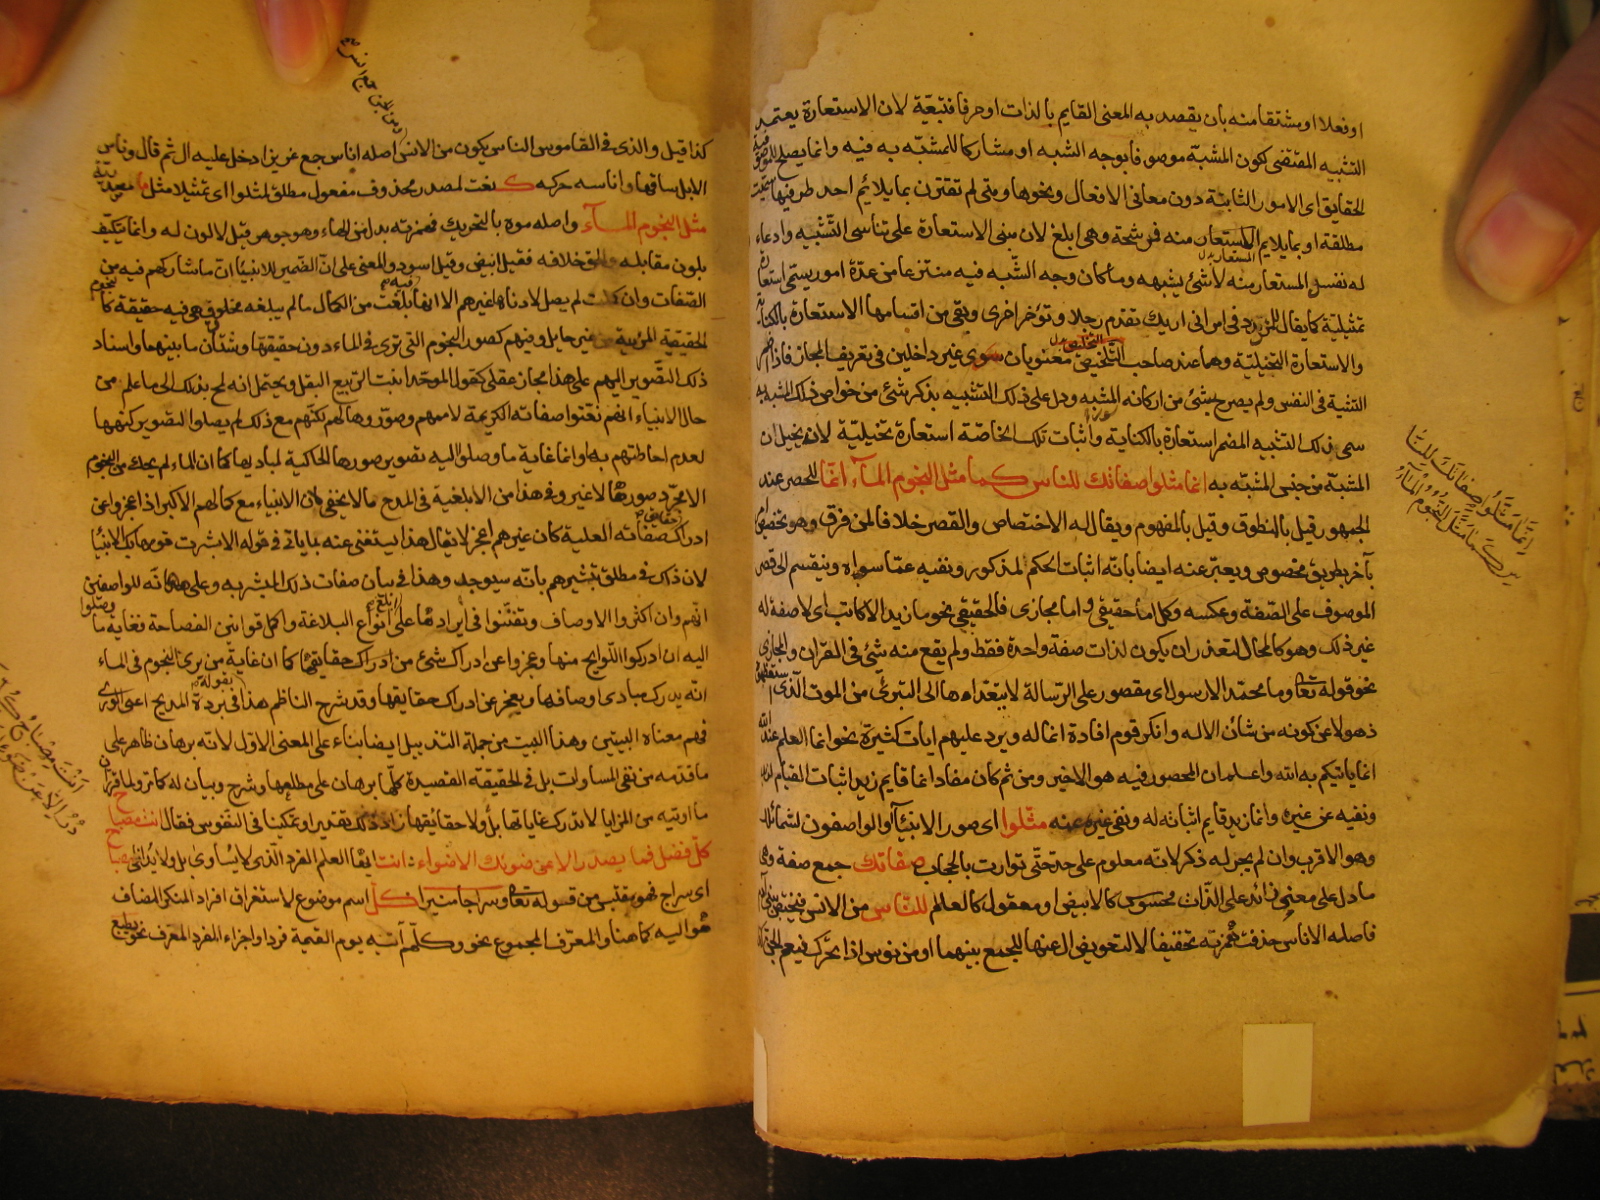 او فعلا او مشتقا منه بان يقصد به المعنى القايم بالذات او حرفا فتبعيّة لان الاستعارة يعتمد
التشبيه المقتضى لكون المشبّه موصوفا بوجه الشبه او مشاركا للمشبّه به فيه وانما يصلح للموصوفية
الحقايق اى الامور الثابتة دون معانى الافعال ونحوها ومتى لم تقترن بما يلائم احد طرفيها سمّيت
مطلقة او بما يلايم المستعار منه فمرشحة وهى ابلغ لان مبنى الاستعارة على تناسى التشبيه وادعاء
له نفس المستعار منه لا شئ يشبهه وما كان وجه الشّبه فيه منتزعا من عدّة امور يسمّى استعارة
تمثيليّة كما يقال للمتردد فى امر انى اريك تقدم رجلا وتؤخر اخرى وبقى من اقسامها الاستعارة بالكناية
والاستعارة التخيليّة وهما عند صاحب التلخيص معنويان غير داخلين فى تعريف المجاز فاذا اضمر
التشبيه فى النفس ولم يصرح بشئ من اركانه المشبه ودل على ذلك التشبيه بذكر شئ من خواص ذلك المشبه به
سمى ذلك التشبيه المضمر استعارة بالكناية واثبات تلك الخاصّة استعارة تخيليّة لانه يخيل ان
المشبّه من جنس المشبّه به انما مثلوا صفاتك للناس كما مثل النجوم المآء انّما للحصر عند
الجمهور قيل بالمنطوق وقيل بالمفهوم ويقال له الاختصاص والقصر خلافا لمن فرق وهو تخصيص امر
بآخر بطريق مخصوص ويعبّر عنه ايضا بانّه اثبات الحكم لمذكور ونفيه عمّا سواه وينقسم الى قصر
الموصوف على الصّفة وعكسه وكل اما حقيقى واما مجازى فالحقيقى نحو ما زيد الا كاتب اى لا صفة له
غير ذلك وهو كالمحال لتعذر ان يكون لذات صفة واحدة فقط ولم يقع منه شئ فى القران والمجازى
نحو قوله تعالى وما محمّد الا رسول اى مقصور على الرسالة لا يتعدّاها الى التبرئ من الموت الّذى استعظموه
ذهولا عن كونه من شان الاله وانكر قوم افادة انما له ويرد عليهم ايات كثيرة نحو انما العلم عند الله
انما ياتيكم به الله واعلم ان المحصور فيه هو الاخير ومن ثم كان مفاد انما قايم زيد اثبات القيام لزيد
ونفيه عن غيره وانما زيد قايم اثباته له ونفى غيره عنه مثّلوا اى صور الانبيآء او الواصفون لشمائلك
وهو الاقرب وان لم يجر له ذكر لانّه معلوم على حد حتّى توارت بالحجاب صفاتك جمع صفة وهى
ما دل على معنى زائد على الذّات محسوس كالابيض او معقول كالعالم للنّاس من الانس فيختص ببنى آدم
فاصله الاناس حذفت همزته تخفيفا لا لتعويض ال عنها للجمع بينهما او من نوس اذا تحرّك فيعم الجن
انّما مثّلوا صفاتك للنّا
س كما مثّل النّجوم المآء
كذا قيل والذى فى القاموس الناس يكون من الانس اصله اناس جمع عزيز ادخل عليه ال ثم قال وناس
الابل ساقها واناسه حركه كـ نعت لمصدر محذوف مفعول مطلق لمثلوا اى تمثيلا مثل ما مصدريّة
مثل النجوم المآء واصله موه بالتحريك فهمزته بدل من الهاء وهو جوهر قيل لا لون له وانما يتكيّف
بلون مقابله والحق خلافه فقيل ابيض وقيل اسود والمعنى على انّ الضّمير للانبيا انّ ما شاركهم فيه من
الصّفات وان كانت لم يصل لادناها غيرهم الا انها بلغت فيه من الكمال ما لم يبلغه مخلوق فهى فيه حقيقة كالنجوم
الحقيقية المرئية من غير حايل وفيهم كصور النجوم التى ترى فى الماء دون حقيقتها وشتّان ما بينهما واسناد
ذلك التّصوير اليهم على هذا مجاز عقلى كقول الموحّد انبت الربيع البقل ويحتمل انه لمح بذلك الى ما علم من
حال الانبياء انهم نعتوا صفاته الكريمة لاممهم وصوّروها لهم لكنّهم مع ذلك لم يصلوا لتصوير كنهها
لعدم احاطتهم به وانما غاية ما وصلوا اليه تصوير صورها الحاكية لمباديها كما ان الماء لم يحك من النجوم
الا مجرّد صورها لا غير وفى هذا من الابلغية فى المدح ما لا يخفى لان الانبياء مع كمالهم الاكبر اذا عجزوا عن
ادراك حقايق صفاته العلية كان غيرهم اعجز لا يقال هذا يستغنى عنه بما ياتى فى قوله الا بشرت قومها بك الانبيا
لان ذلك فى مطلق تبشيرهم بانّه سيوجد وهذا فى بيان صفات ذلك المبشر به وعلى انّه للواصفين
انّهم وان اكثروا الاوصاف وتفنّنوا فى ايرادها على ابلغ انواع البلاغة واكمل قوانين الفصاحة فغاية ما وصلوا
اليه ان ادركوا اللوايح منها وعجزوا عن ادراك شئ من ادراك حقايقها كما ان غاية من يرى النجوم فى الماء
انّه يدرك مبادى اوصافها ويعجز عن ادراك حقايقها وقد شرح الناظم هذا فى بردة المديح بقوله اعيى الورى
فهم معناه البيتين وهذا البيت من جملة التذييل ايضا بناء على المعنى الاوّل لانّه برهان ظاهر على
ما قدّمه من نفى المساوات بل فى الحقيقة القصيدة كلّها برهان على مطلعها وشرح وبيان له كما تر ولما قرّر ان
ما اوتيه من المزايا لا تدرك غاياتها بل ولا حقائقها زاد ذلك تقديرا وتمكينا فى النّفوس فقال انت مصباح
كلّ فضل فما يصدر الا عن ضوئك الاضواء انت ايّها العلم الفرد الّذى لا يُساوى بل ولا يُدانى مصباح
اى سراج فهو مقتبس من قوله تعالى وسراجا منيرا كلّ اسم موضوع لاستغراق افراد المنكر المضاف
هُو اليه كما هنا والمعرّف المجموع نحو وكلّهم آتيه يوم القيمة فردا واجزاء المفرد المعرف نحو يطبع
انت مصباح كلّ